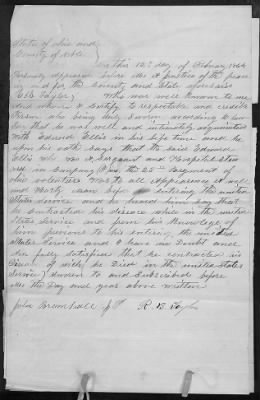 State of ohio and
County of noble
On this 12th day of February 1864
Personly appeared before Me A Justice of the peace
in and for the County and State aforesaid
R B Taylor Who was well known to me
and whom I Certify to respectable and credible
Person who being duly Sworn according to law
Say that he was well and intimately acquainted
with Edward Ellis in his life time and he
upon his oath Says that the said Edward
Ellis who was A Sergeant and Hospital Stew
ard in Company the 25 Regiment of
ohio volunteers Was to all Appearance A well
and Harty man before Entering the united
States Service and he heard him Say that
he Contracted his disease while in the united
States Service and from his Knowledge of
him previous to his entering the united
States Service and I have no Doubt and
am fully Satisfied that he contracted his
disease of wich he Died in the united States
Service Sworn to and Subscribed before
Me the Day and year above written
John Bramhall J P R. B. Taylor